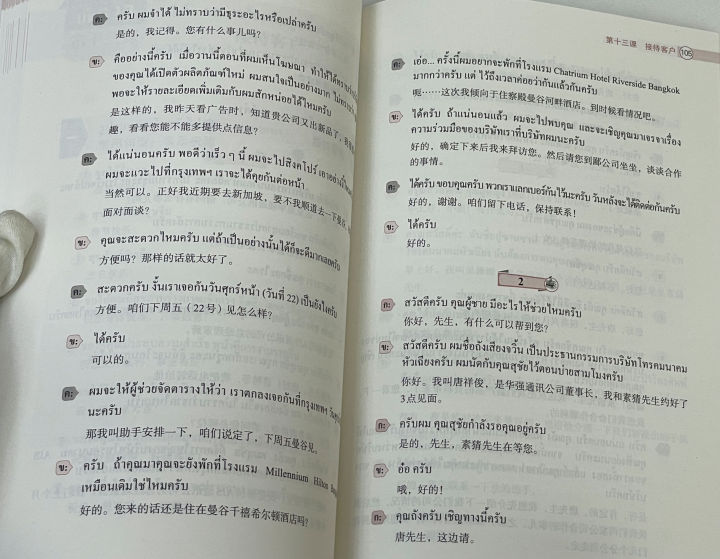 ค: ครับ ผมจำได้ ไม่ทราบว่ามีธุระอะไรหรือเปล่าครับ
是的，我记得。您有什么事儿吗？
ข: คืออย่างนี้ครับ เมื่อวานนี้ตอนที่ผมเห็นโฆษณา ทำให้ได้ทราบว่า
ของคุณได้เปิดตัวผลิตภัณฑ์ใหม่ ผมสนใจเป็นอย่างมาก ไม่ทราบว่า
พอจะให้รายละเอียดเพิ่มเติมกับผมสักหน่อยได้ไหมครับ
是这样的，我昨天看广告时，知道贵公司又出新品了，我
趣，看看您能不能多提供点信息？
ค: ได้แน่นอนครับ พอดีว่าเร็ว ๆ นี้ ผมจะไปสิงคโปร์ เอาอย่างนี้ไหม
ผมจะแวะไปที่กรุงเทพฯ เราจะได้คุยกันต่อหน้า
当然可以。正好我近期要去新加坡，要不我顺道去一下曼谷，
面对面谈？
ข: คุณจะสะดวกไหมครับ แต่ถ้าเป็นอย่างนั้นได้ก็จะดีมากเลยครับ
方便吗？那样的话就太好了。
ค: สะดวกครับ งั้นเราเจอกันวันศุกร์หน้า (วันที่ 22) เป็นยังไงครับ
方便。咱们下周五（22号）见怎么样？
ข: ได้ครับ
可以的。
ค: ผมจะให้ผู้ช่วยจัดตารางให้ว่า เราตกลงเจอกันที่กรุงเทพฯ
นะครับ
那我叫助手安排一下，咱们说定了，下周五曼谷见。
ข: ครับ ถ้าคุณมาคุณจะยังพักที่โรงแรม Millennium Hilton
เหมือนเดิมใช่ไหมครับ
好的。您来的话还是住在曼谷千禧希尔顿酒店吗？
第十三课 接待客户 105
ค: เอ่อ... ครั้งนี้ผมอยากจะพักที่โรงแรม Chatrium Hotel Riverside Bangkok
มากกว่าครับ แต่ ไว้ถึงเวลาค่อยว่ากันแล้วกันครับ
呃……这次我倾向于住察殿曼谷河畔酒店。到时候看情况吧。
ข: ได้ครับ ถ้าแน่นอนแล้ว ผมจะไปพบคุณ และจะเชิญคุณมาเจรจาเรื่อง
ความร่วมมือของบริษัทเราที่บริษัทผมนะครับ
好的，确定下来后我来拜访您。然后请您到鄙公司坐坐，谈谈合作
的事情。
ค: ได้ครับ ขอบคุณครับ พวกเราแลกเบอร์กันไว้นะครับ วันหลังจะได้ติดต่อกันครับ
好的，谢谢。咱们留下电话，保持联系！
ข: ได้ครับ
好的。
2
ก: สวัสดีครับ คุณผู้ชาย มีอะไรให้ช่วยไหมครับ
你好，先生，有什么可以帮到您？
ข: สวัสดีครับ ผมชื่อถังเสียงจวิ้น เป็นประธานกรรมการบริษัทโทรคมนาคม
หัวเฉียงครับ ผมนัดกับคุณสุชัยไว้ตอนบ่ายสามโมงครับ
你好。我叫唐祥俊，是华强通讯公司董事长，我和素猜先生约好了
3点见面。
ก: ครับผม คุณสุชัยกำลังรอคุณอยู่ครับ
是的，先生，素猜先生在等您。
ข: อ๋อ ครับ
哦，好的！
ก: คุณถังครับ เชิญทางนี้ครับ
唐先生，这边请。